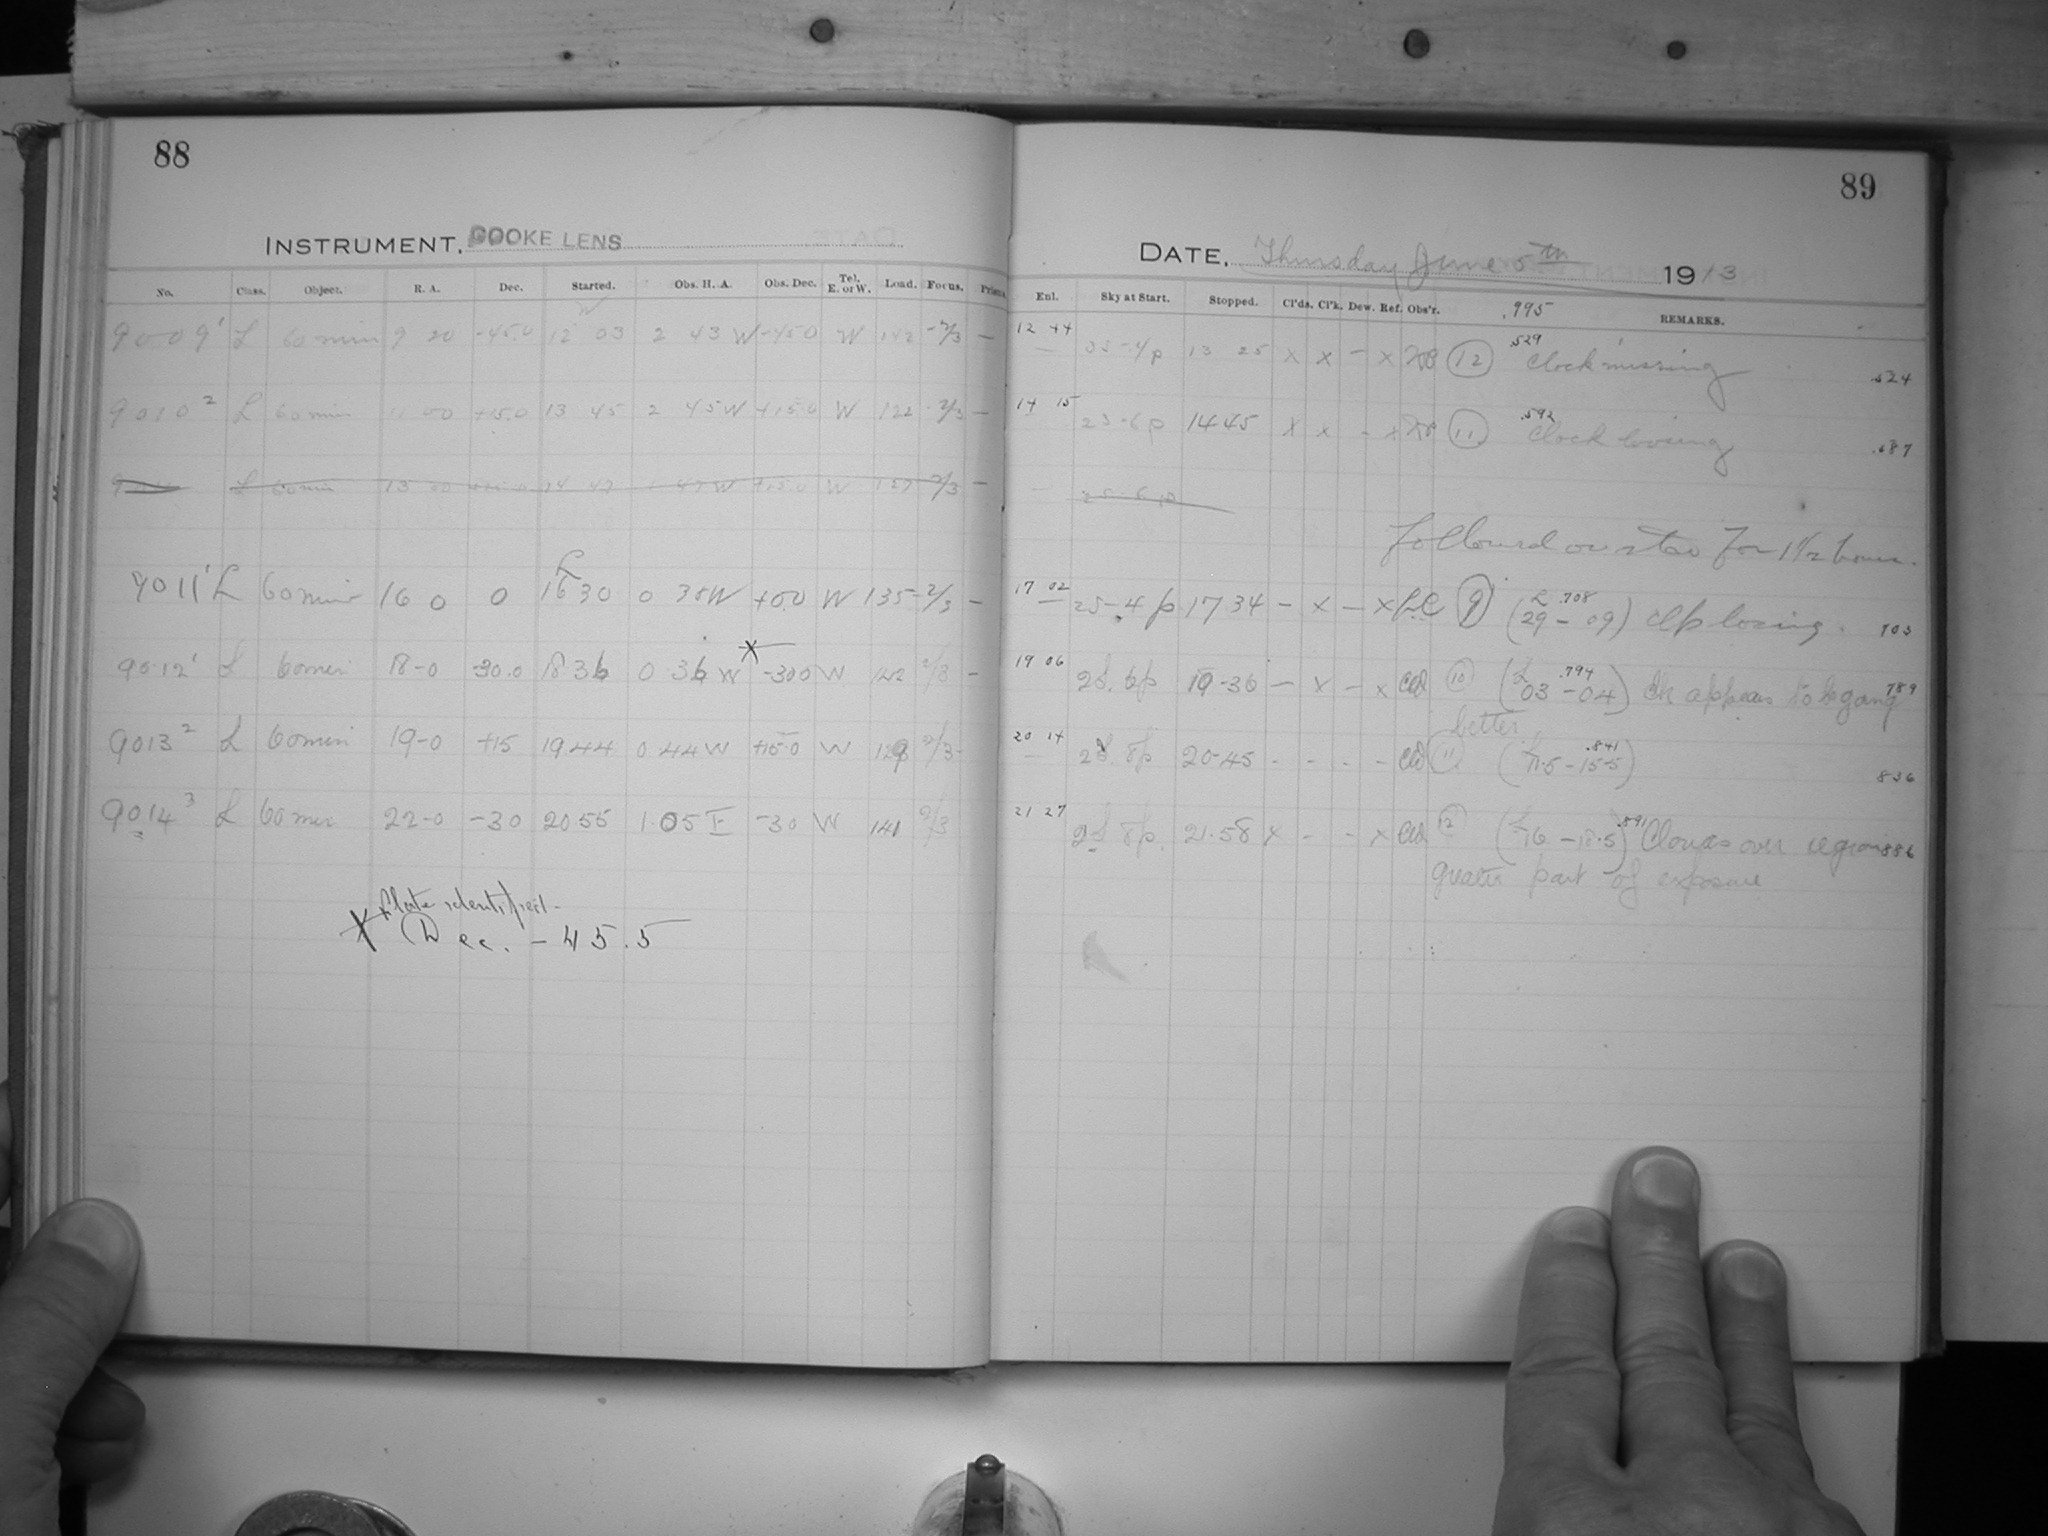 88
INSTRUMENT. COOKE LENS
No. Class. Object. R. A. Dec. Started. Obs. H. A. Obs. Dec. Tel. E. or W. Load. Focus.
9009 1 L 60 min 9 20 -45.0 12 03 2 43 W -45.0 W 142 -2/3 —
9010 2 L 60 min 11 00 +15.0 13 45 2 45 W +15.0 W 122 -2/3 —
L 60 min 13 00 14 47 1 47 W +15.0 W 127 2/3 —
L
9011 1 L 60 min 16 0 0 16 30 0 38 W +00 W 135 -2/3 —
9012 1 L 60 min 18-0 -30.0 18 36 0 36 W X -30.0 W 122 2/3 —
9013 2 L 60 min 19-0 +15 19 44 0 44 W +15.0 W 129 2/3 -
9014 3 L 60 min 22-0 -30 20 55 1.05 E -30 W 141 2/3
Plate identified -
X (Dec. - 45.5
89
DATE. Thursday June 5th 1913
Enl. Sky at Start. Stopped. Cl'ds. Cl'k. Dew. Ref. Obs'r. .995 REMARKS.
12 44 — 13 25 x x - x (12) .529 Clock missing .524
14 15 — 2S-6p 14 45 x x - x (11) .592 Clock loosing .587
2S-6p
followed on star for 1 1/2 hours.
17 02 — 2S-4p 17 34 - x - x LC (9) L .708 (29 - 09) Clk losing. 703
19 06 2S. 6p 19-36 - x - x (10) L .794 (03 - 04) Ck appears to be going 789
better
20 14 — 2S. 8p 20-45 - - - - (11) L .841 (11.5 - 15.5) 836
21 27 2S 8p. 21.58 x - - x (12) L .891 (16 - 18.5) Clouds over region 886
greater part of exposure